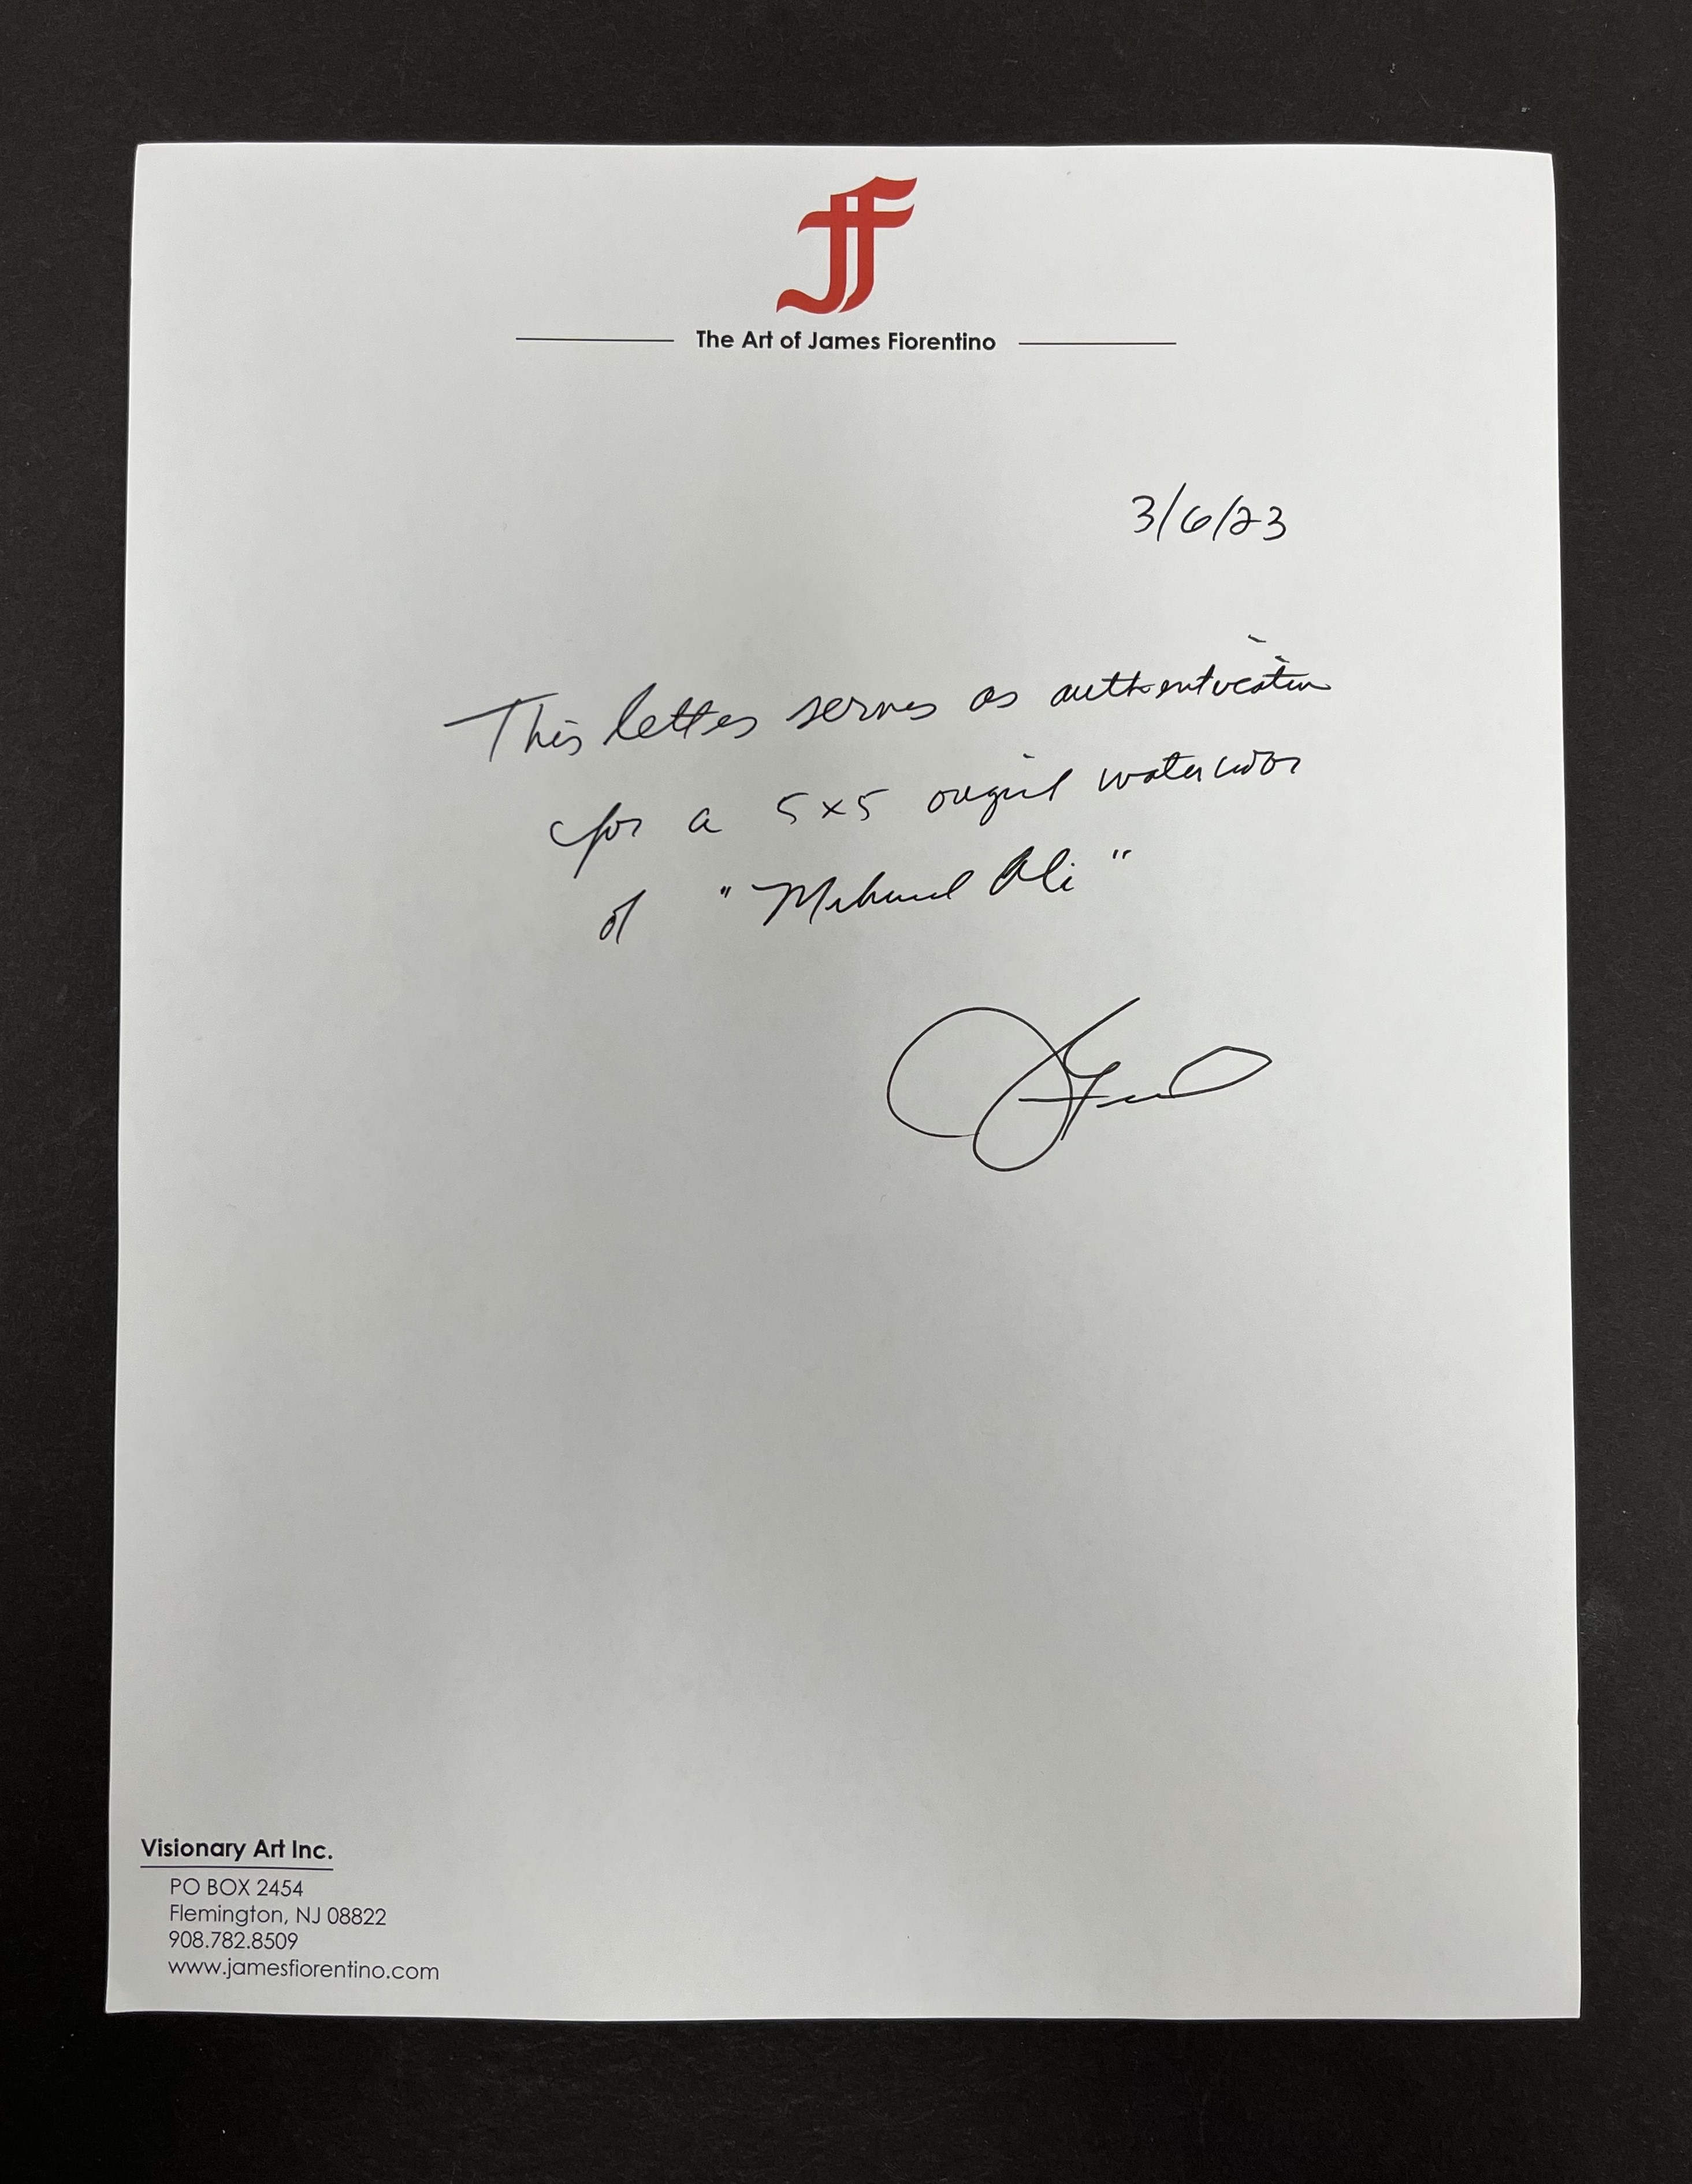 JF
The Art of James Fiorentino
3/6/23
This letter serves as authentication
for a 5x5 original watercolor
of "Muhammad Ali"
Visionary Art Inc.
PO BOX 2454
Flemington, NJ 08822
908.782.8509
www.jamesfiorentino.com